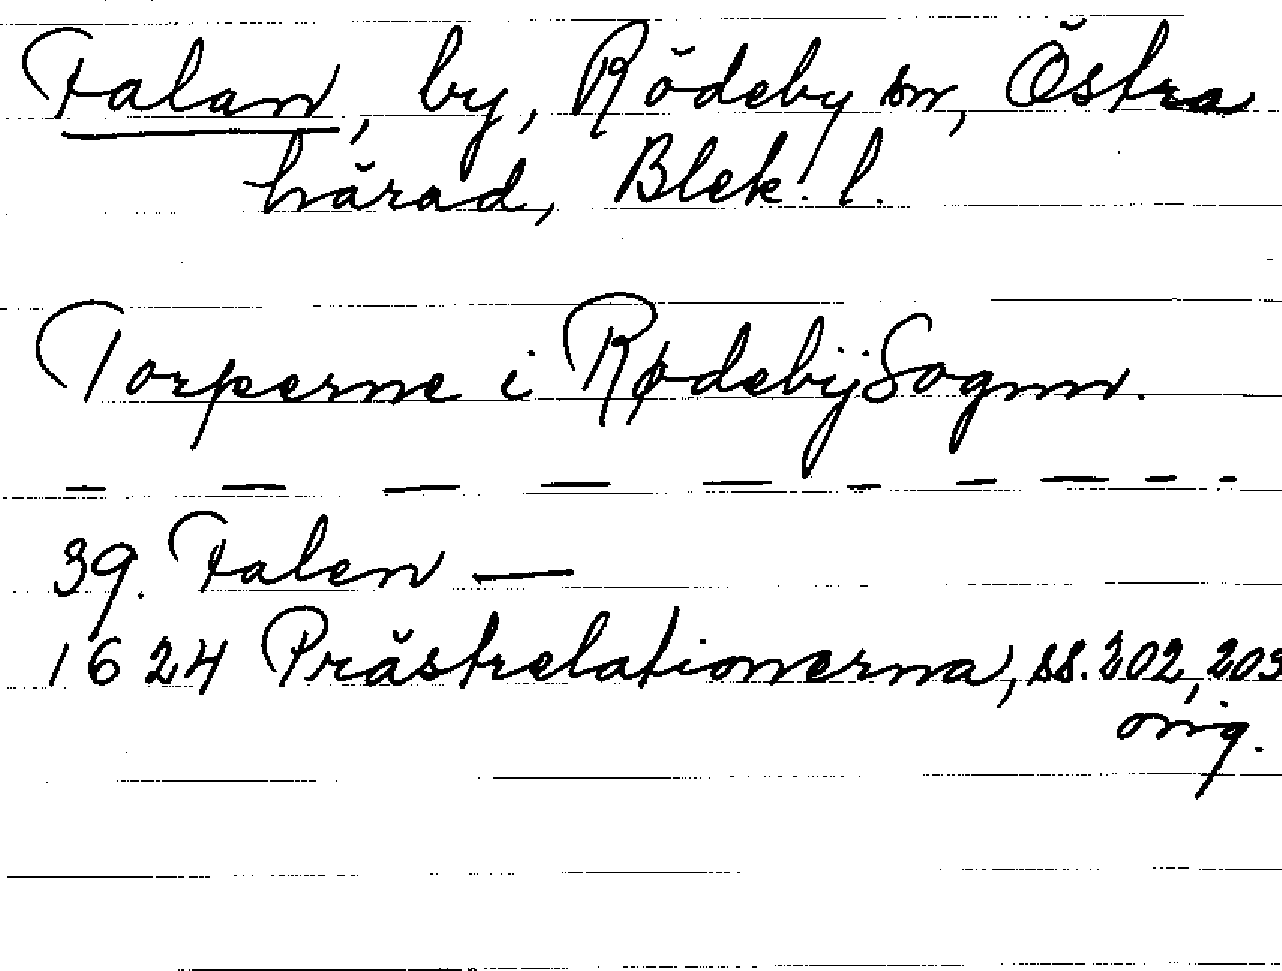 Falan, by, Rödeby sn, Östra
härad, Blek. l.
Torperne i Rødebÿ Sognn.
— — — — — — — — — -
39. Falen —
1624 Prästrelationerna, ss. 202, 203
orig.